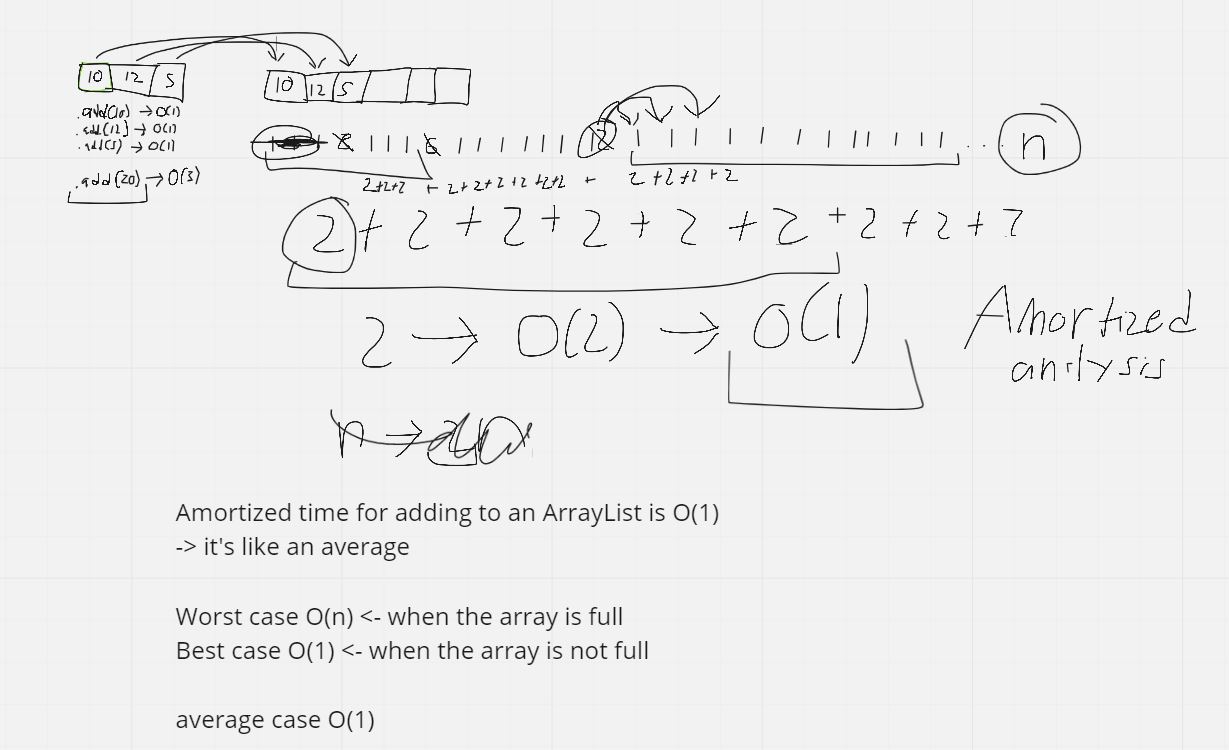 10 12 5
10 12 5
.add(10) → O(1)
.add(12) → O(1)
.add(5) → O(1)
.add(20) → O(3)
12 | | | | | | | | | | | .. n
2+2+2 + 2+2+2+2+2+2 + 2+2+2+2
2 + 2 + 2 + 2 + 2 + 2 + 2 + 2 + 2
2 → O(2) → O(1)
Amortized
analysis
n →
Amortized time for adding to an ArrayList is O(1)
-> it's like an average
Worst case O(n) <- when the array is full
Best case O(1) <- when the array is not full
average case O(1)